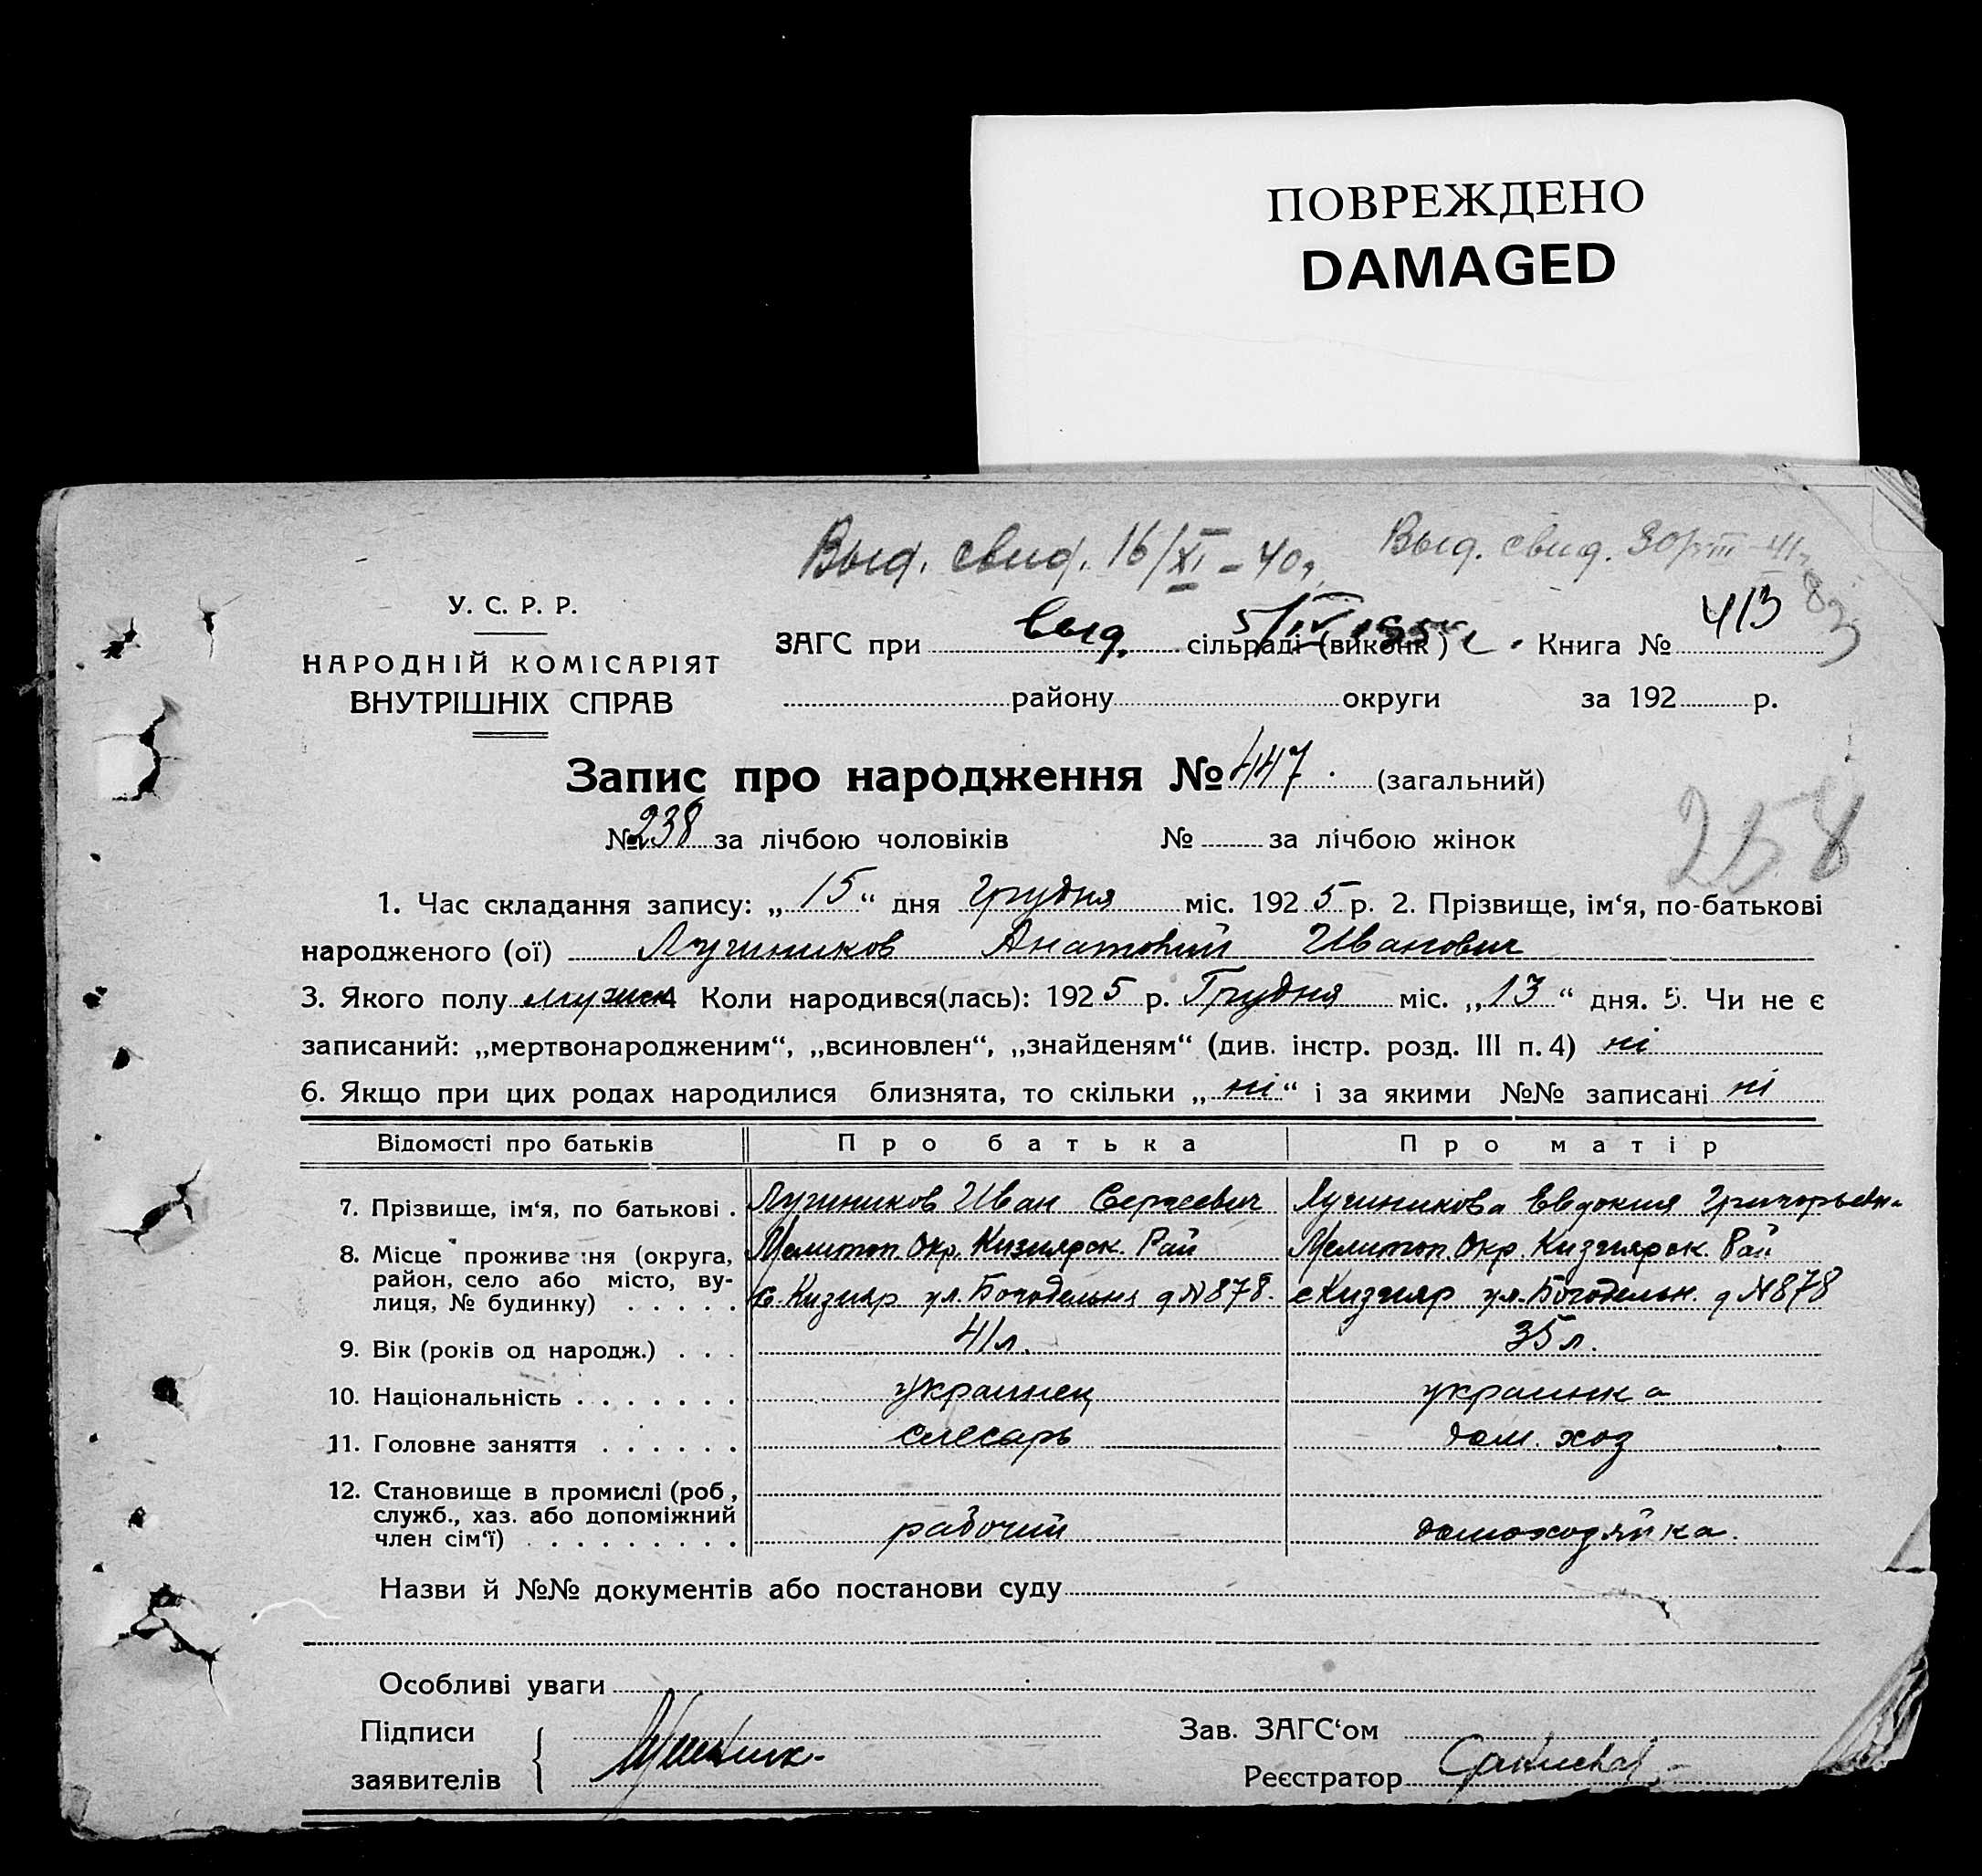 ПОВРЕЖДЕНО
DAMAGED
Выд. свид. 16/XI-40г. Выд. свид. 30/VIII-41г.
У. С. Р. Р.
НАРОДНІЙ КОМІСАРІЯТ
ВНУТРІШНІХ СПРАВ
ЗАГС при Выд. сільраді (виконк) 5/IV Книга № 413
району округи за 192 р.
Запис про народження № 447. (загальний)
№ 238 за лічбою чоловіків № за лічбою жінок
258
1. Час складання запису: „15“ дня Грудня міс. 1925 р. 2. Прізвище, ім‘я, по-батькові
народженого (ої) Лучников Анатолий Иванович
3. Якого полу мужск 4 Коли народився(лась): 1925 р. Грудня міс. „13“ дня. 5. Чи не є
записаний: „мертвонародженим“, „всиновлен“, „знайденям“ (див. інстр. розд. III п. 4) ні
6. Якщо при цих родах народилися близнята, то скільки „ні“ і за якими №№ записані ні
Відомості про батьків Про батька Про матір
7. Прізвище, ім‘я, по батькові . Лучников Иван Сергеевич Лучникова Евдокия Григорьевн-
8. Місце проживання (округа, Мелитоп. Окр. Кизиярск. Рай Мелитоп. Окр. Кизиярск. Рай
район, село або місто, ву-
лиця, № будинку) . . . . . с. Кизияр ул. Богодельня д N 878. с Кизияр ул. Богодельн. д N 878
9. Вік (років од народж.) . . . 41 л. 35 л.
10. Національність . . . . . . . украинец украинка
11. Головне заняття . . . . . . слесарь дом. хоз
12. Становище в промислі (роб,
служб., хаз. або допоміжний
член сім‘ї) . . . . . . . . . рабочий домохозяйка.
Назви й №№ документів або постанови суду
Особливі уваги
Підписи Зав. ЗАГС‘ом
заявителів Реєстратор